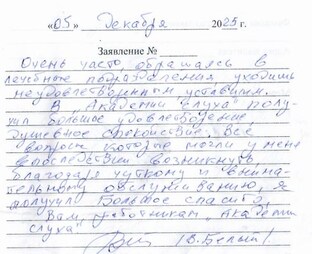 «05» Декабря 2025 г.
Заявление №
Очень часто обращаясь в
лечебные подразделения уходишь
неудовлетворенным уставшим.
В "Академии слуха" полу-
чил большое удовлетворение,
душевное спокойствие. Все
вопросы, которые могли у меня
впоследствии возникнуть,
благодаря чуткому и внима-
тельному обслуживанию, я
получил Большое спасибо,
Вам, работникам "Академии
слуха"
(В.Белый)